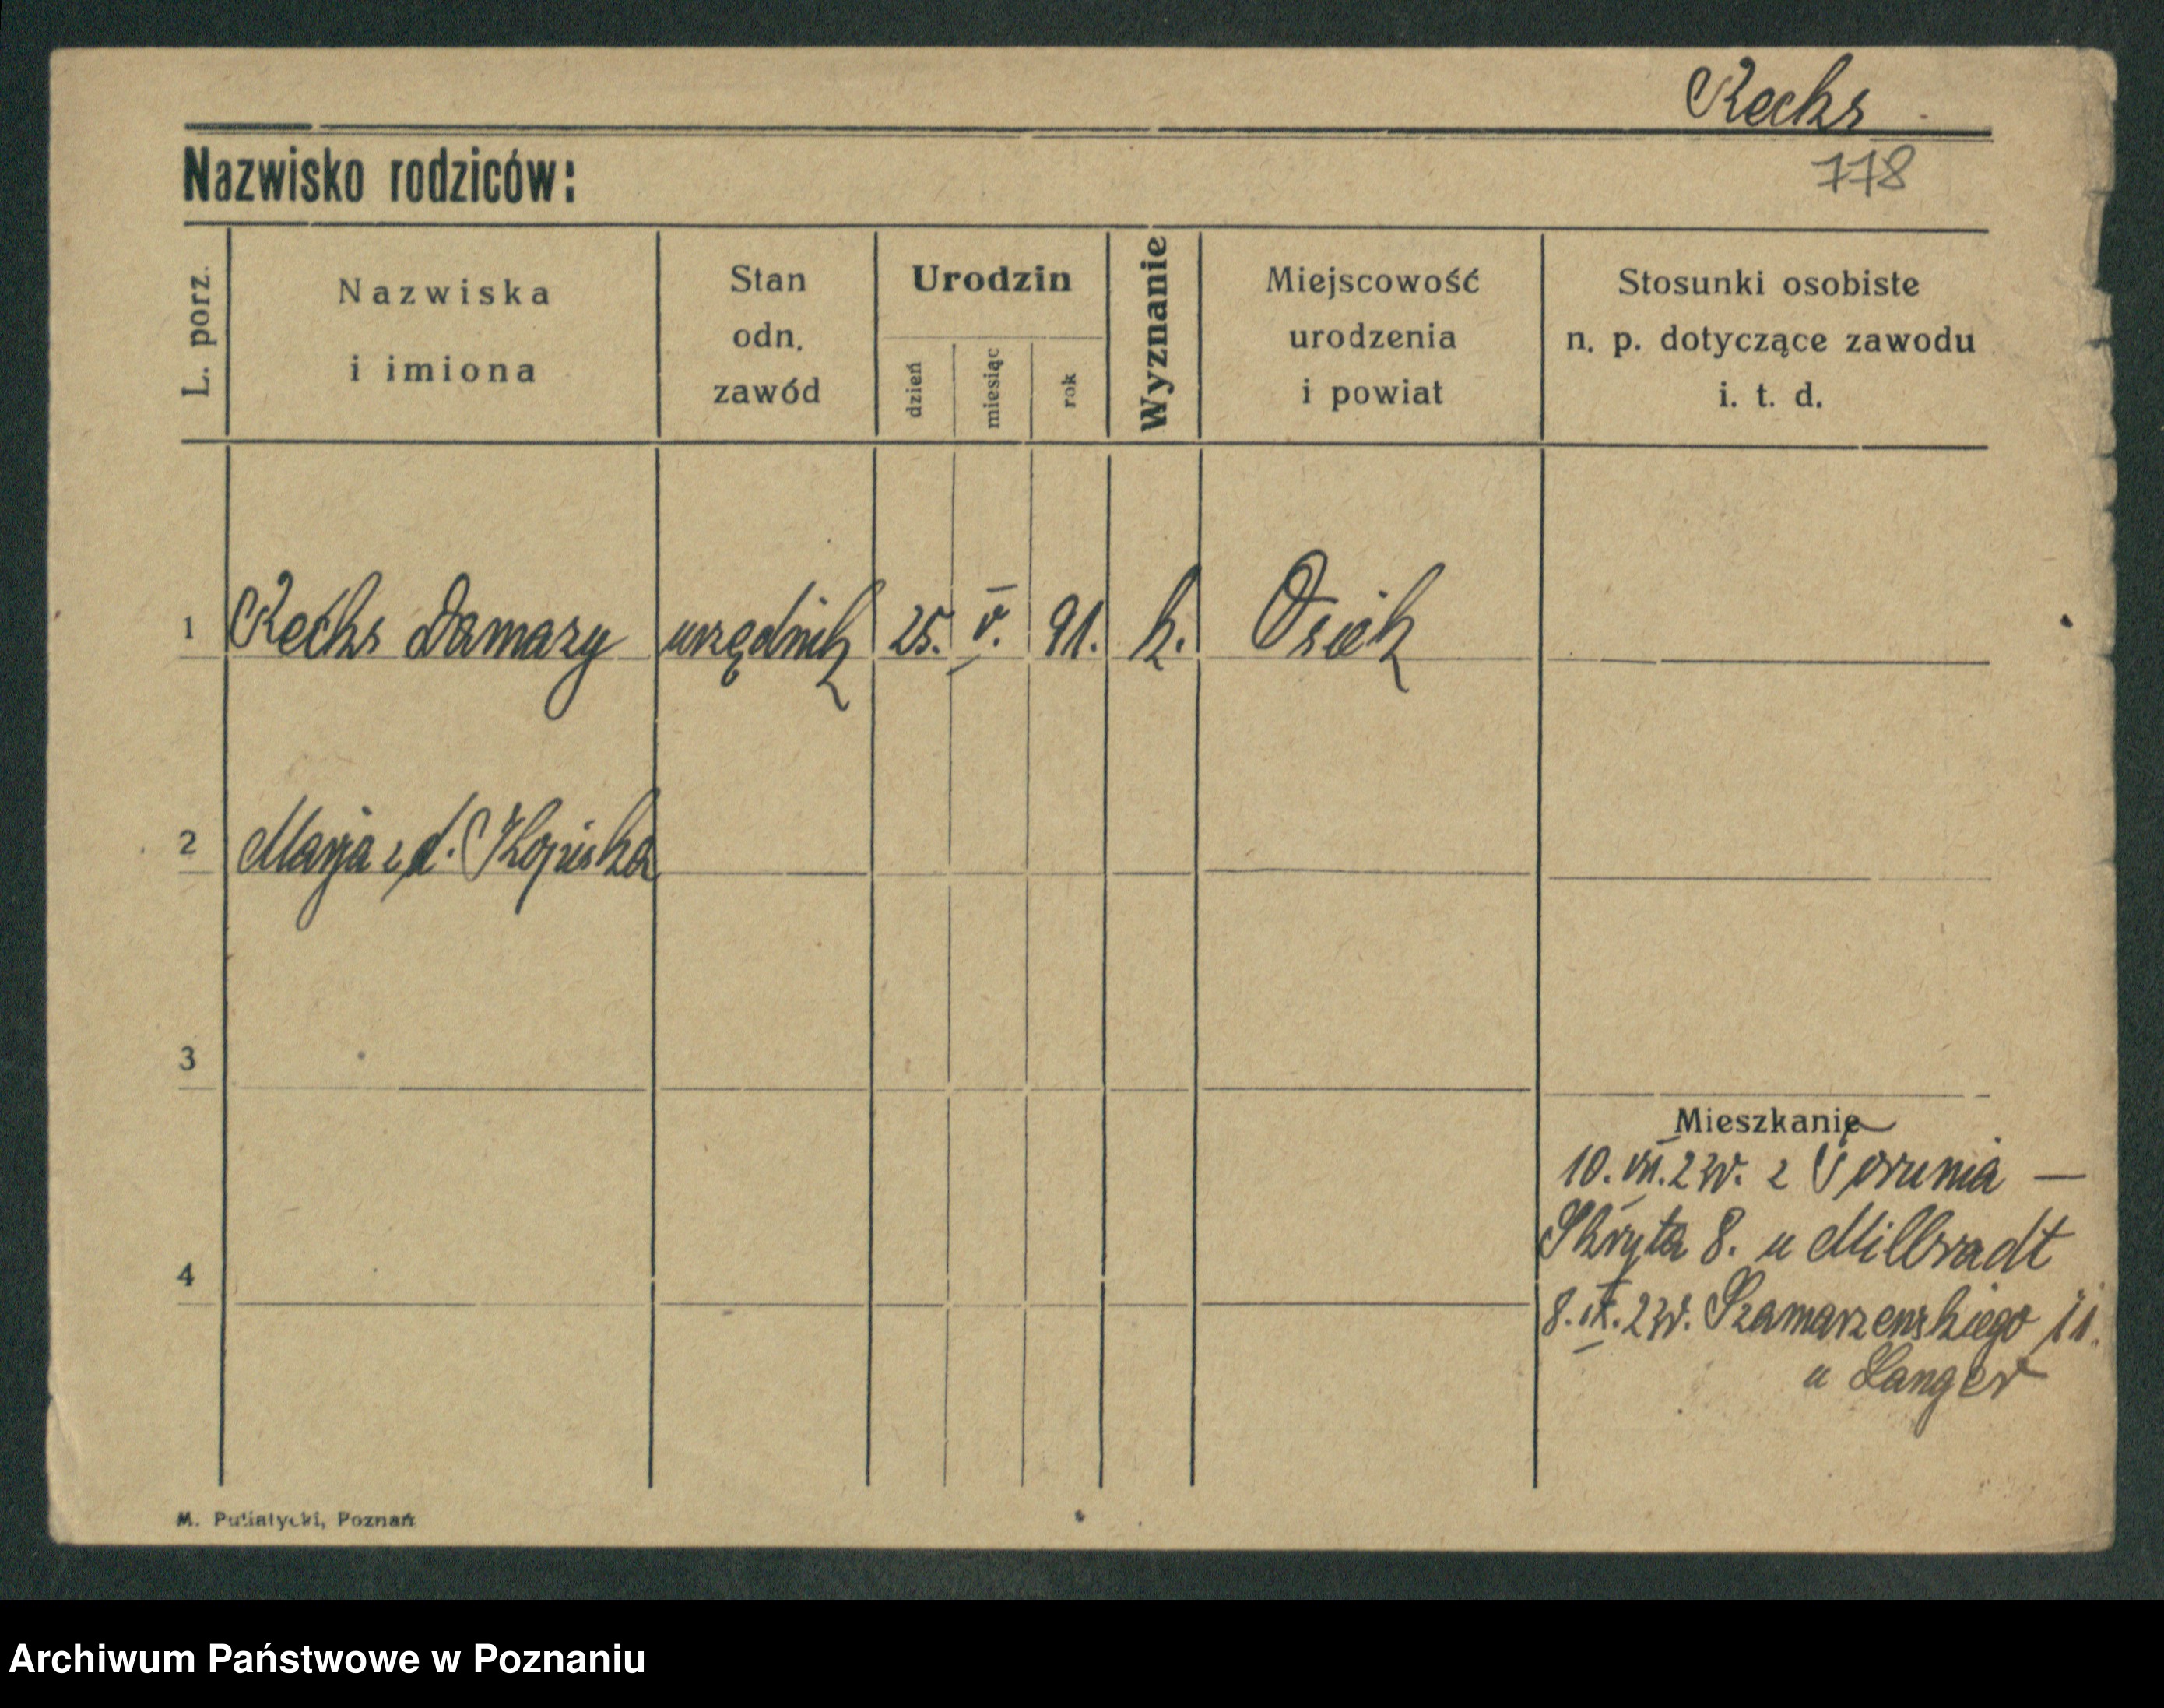 Rechs
778
Nazwisko rodziców:
L. porz.
Nazwiska
i imiona
Stan
odn.
zawód
Urodzin
dzień
miesiąc
rok
Wyznanie
Miejscowość
urodzenia
i powiat
Stosunki osobiste
n. p. dotyczące zawodu
i. t. d.
1 Rechs Damazy urzędnik 25. V. 91. k. Osiek
2 Marja z d.
3
Mieszkanie
10. VII. 23r. z Torunia —
Skryta 8. u Millbradt
4
8. IX. 23r. Szamarzenskiego 11.
u Langer
M. Putiatycki, Poznań
Archiwum Państwowe w Poznaniu